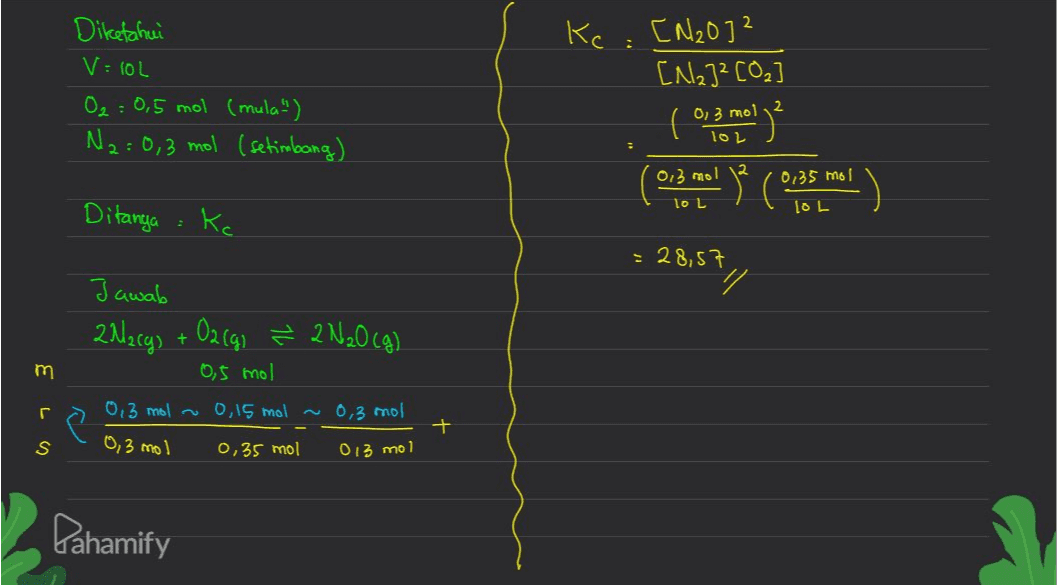 Diketahui
V = 10 L
O₂ = 0,5 mol (mula")
N₂ = 0,3 mol (setimbang)
Ditanya = Kc
Jawab
2N₂(g) + O₂(g) ⇌ 2N₂O(g)
m 0,5 mol
r 0,3 mol ~ 0,15 mol ~ 0,3 mol
- +
s 0,3 mol 0,35 mol 0,3 mol
Kc = [N₂O]²
[N₂]² [O₂]
= (0,3 mol / 10 L)²
(0,3 mol / 10 L)² (0,35 mol / 10 L)
= 28,57 //
Pahamify